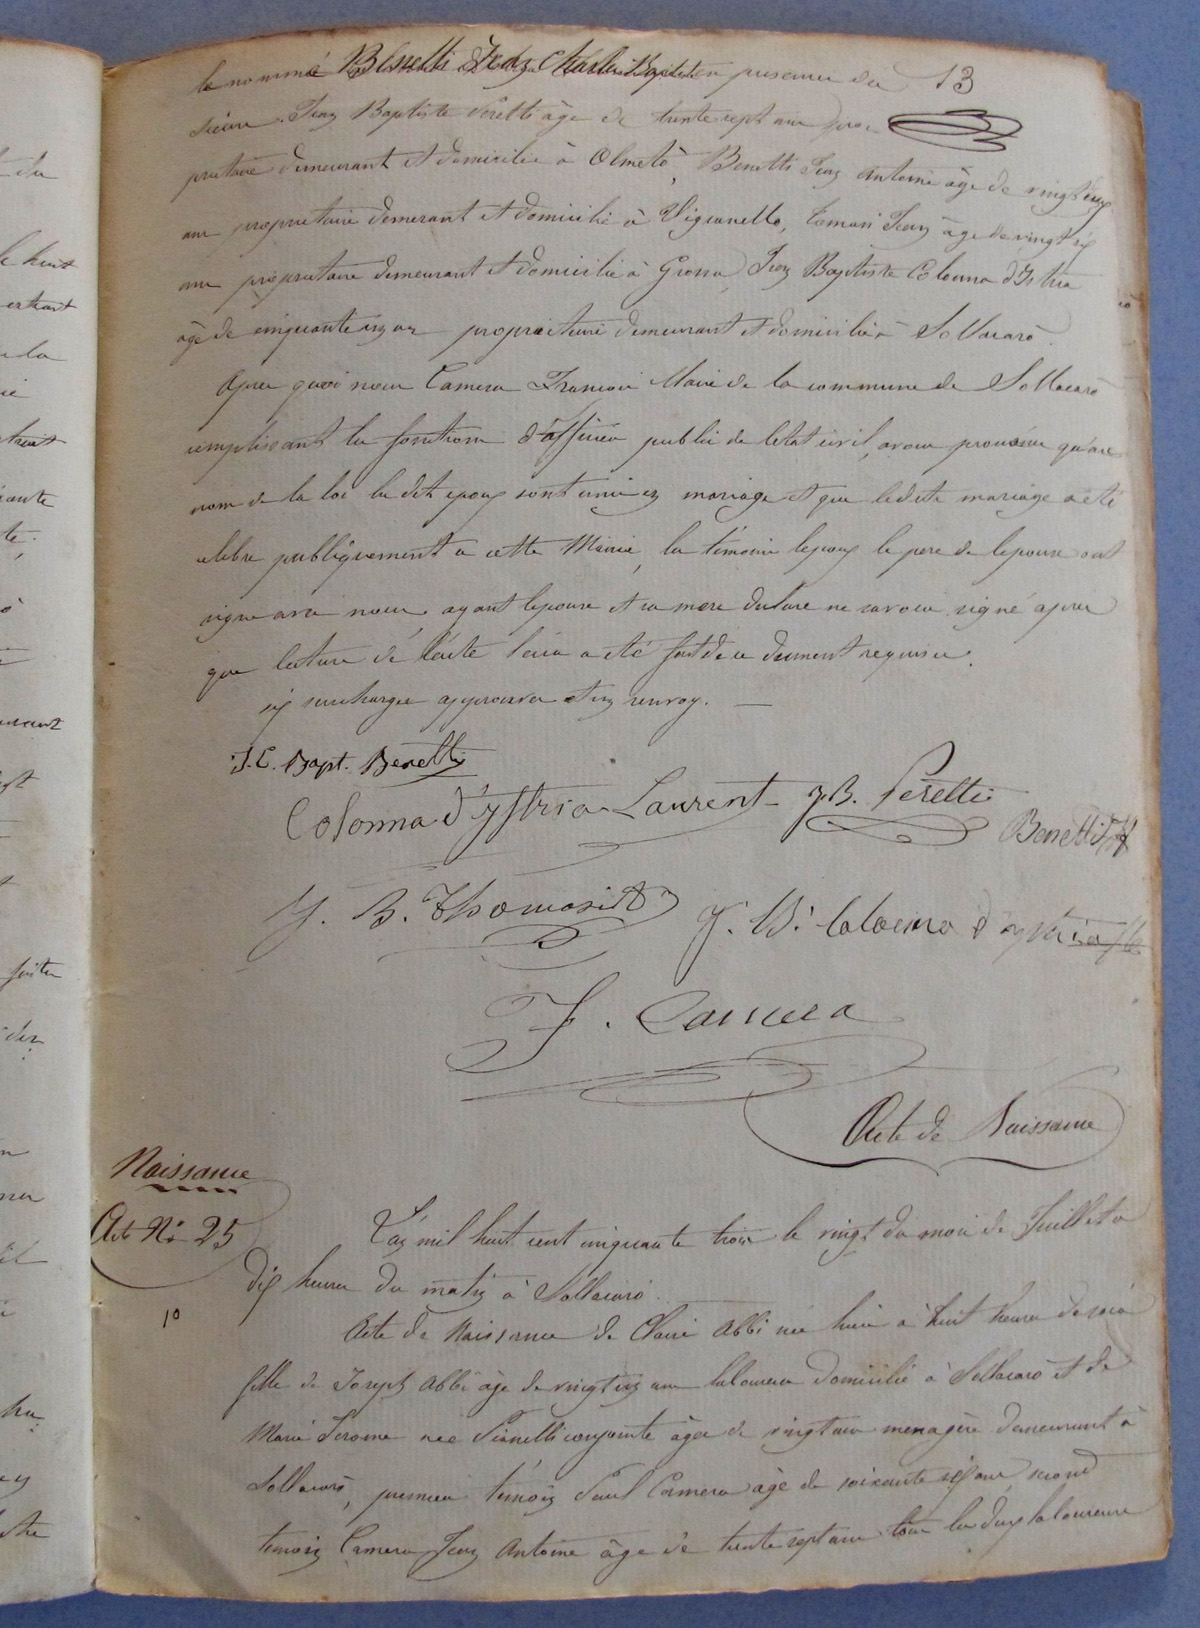 le nommé Benetti Jean Charles Baptiste en presence des 13
sieurs Jean Baptiste Peretti âge de trente sept ans pro
prietaire demeurant et domicilié à Olmeto, Benetti Jean Antoine âge de vingt deux
ans proprietaire demeurant et domicilié à Viggianello, Tomasi Jean âge de vingt six
ans proprietaire demeurant et domicilié à Grossa, Jean Baptiste Colonna d'Istria
âge de cinquante six ans proprietaire demeurant et domicilié à Sollacaro.
Apres quoi nous Camera François Maire de la commune de Sollacaro
remplissant les fonctions d'officier public de letat civil, avons prononcé qu'au
nom de la loi les dits epoux sont unis en mariage et que ledite mariage a été
celebre publiquement a cette Mairie, les témoins lepoux le pere de lepouse ont
signe avec nous, ayant lepouse et sa mere declare ne savoir signé apres
que lecture de l'acte leur a été fait de ce dument requis.
six surcharges approuves et un renvoy. —
J. C. Bapt. Benetti
Colonna d'ystria Laurent J.B. Peretti
Benetti
J. B. Thomasi
J. B. Colonna d'ystria
F. Camera
Acte de Naissance
Naissance
Acte No 25
L'an mil huit cent cinquante trois le vingt du mois de Juillet a
dix heures du matin à Sollacaro.
10
Acte de Naissance de Claire Abbi née hier à huit heures de soir
fille de Joseph Abbi âge de vingt six ans laboureur domicilié à Sollacaro et de
Marie Jerome née Pianelli conjointe âgée de vingt ans menagère demeurant à
Sollacaro, premier témoin Paul Camera âge de soixante six ans, second
temoin Camera Jean Antoine âge de trente sept ans tous les deux laboureurs